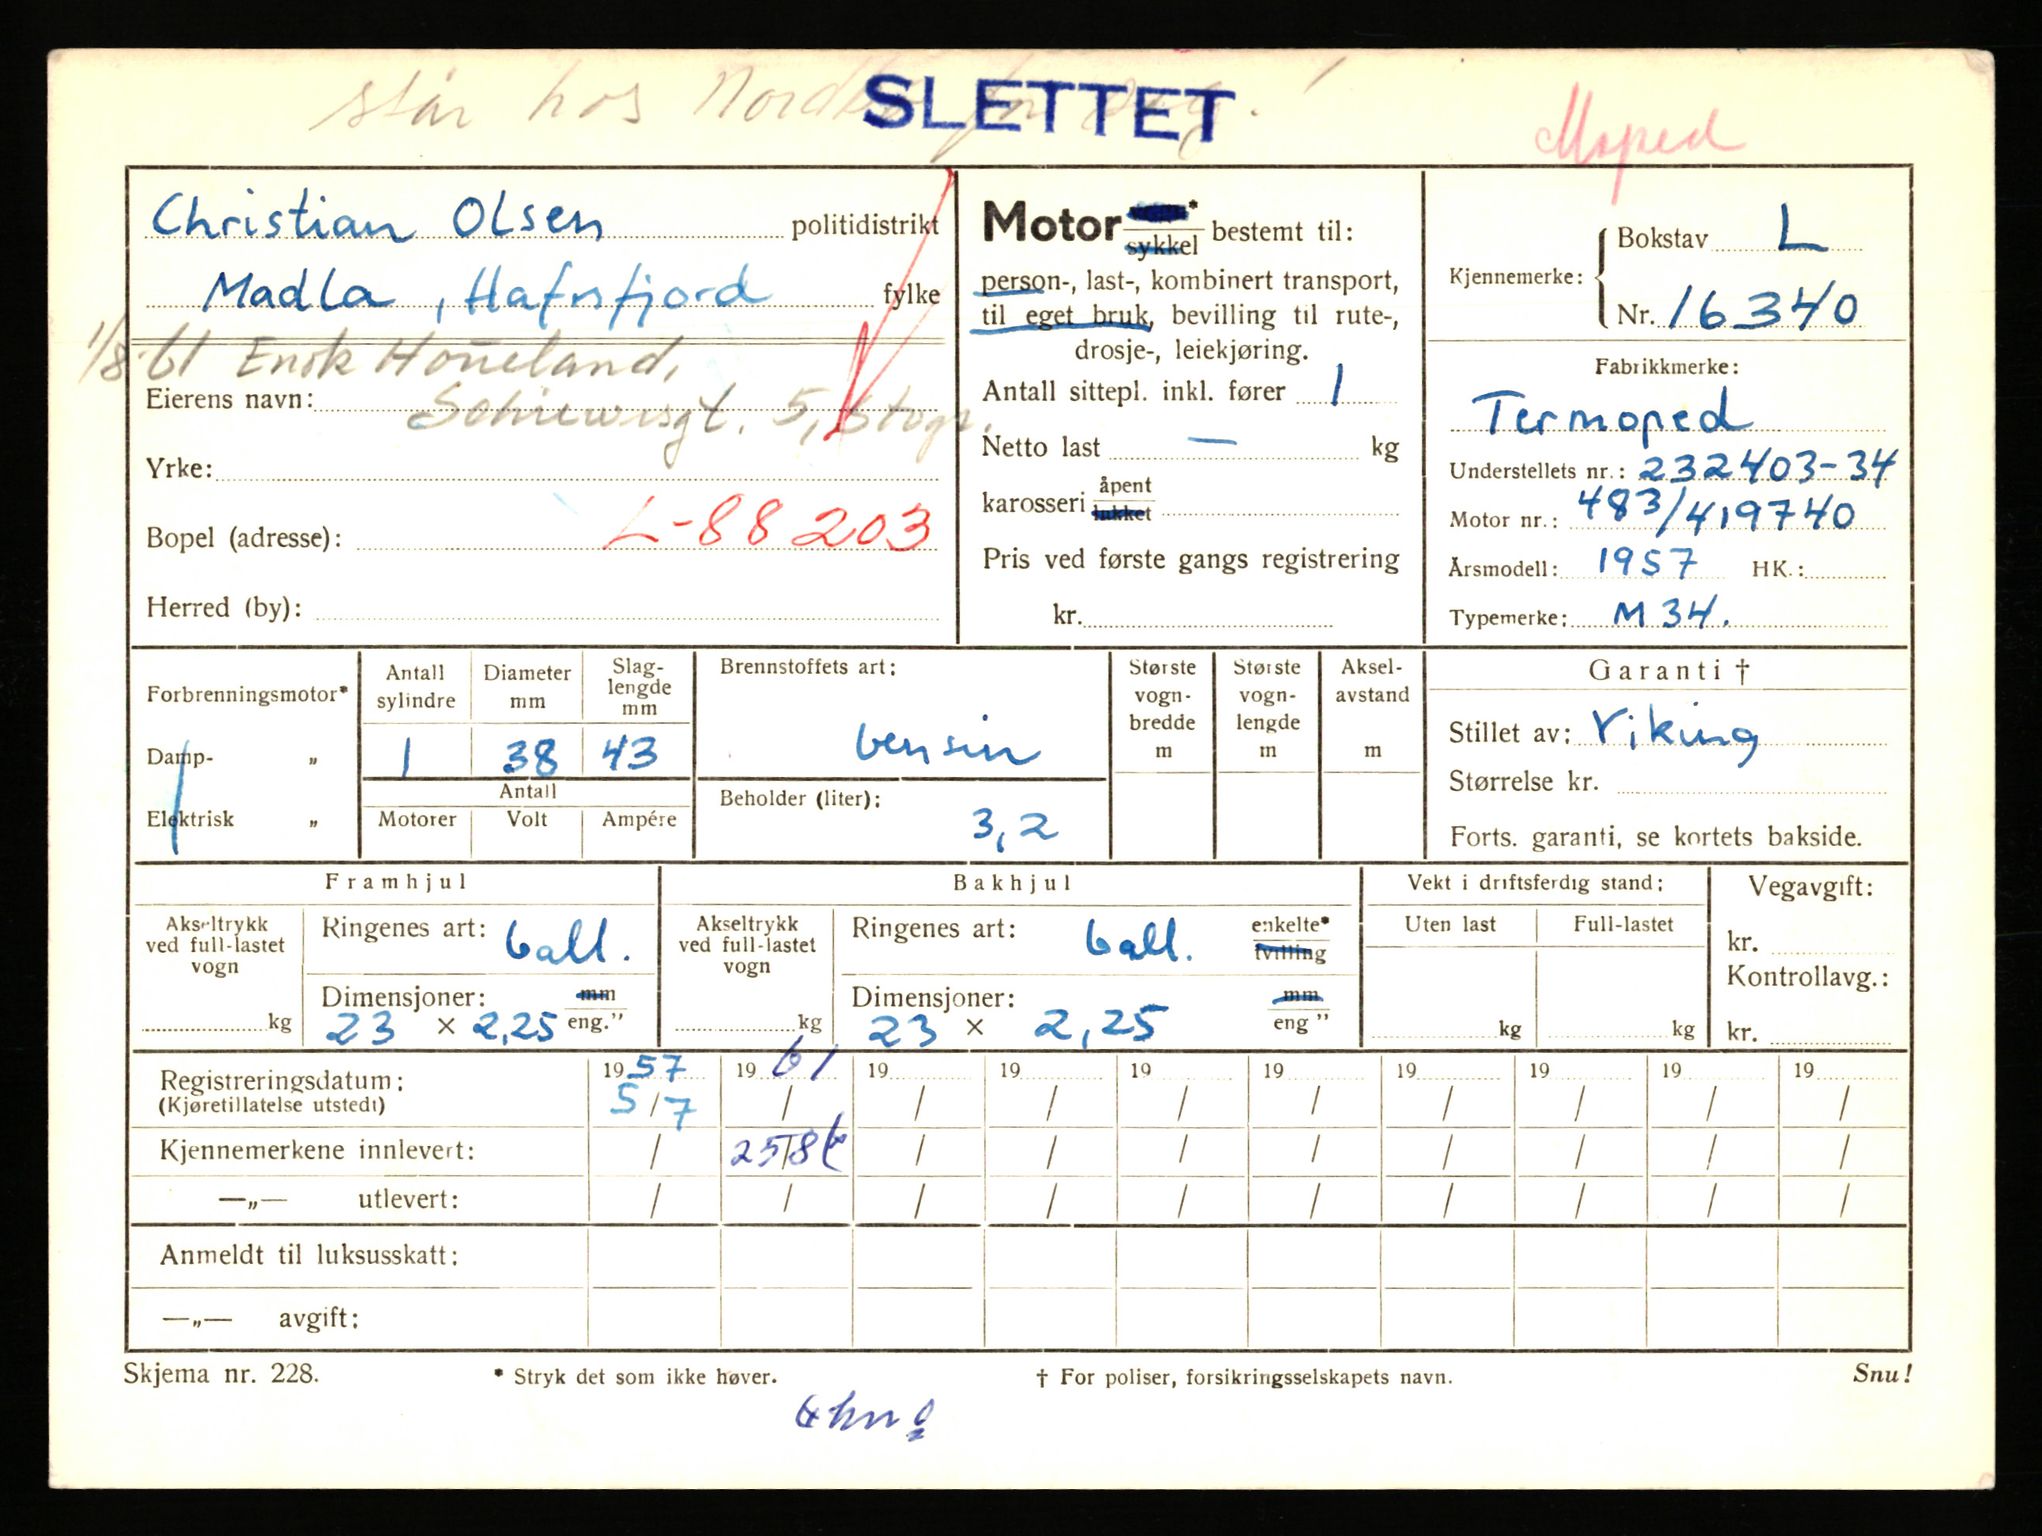 står hos Nordbø for salg!
SLETTET
Moped
Christian Olsen politidistrikt
Madla, Hafrsfjord fylke
1/8-61 Enok Houeland,
Eierens navn: 5, Stvgr.
Yrke:
Bopel (adresse): L-88203
Herred (by):
Motor* sykkel bestemt til:
person-, last-, kombinert transport,
til eget bruk, bevilling til rute-,
drosje-, leiekjøring.
Antall sittepl. inkl. fører 1
Netto last — kg
karosseri åpent lukket
Pris ved første gangs registrering
kr.
Kjennemerke: Bokstav L
Nr. 16340
Fabrikkmerke:
Termoped
Understellets nr.: 232403-34
Motor nr.: 483/419740
Årsmodell: 1957 HK.:
Typemerke: M 34.
Forbrenningsmotor*
Damp- „
Elektrisk „
Antall sylindre Diameter mm Slag-lengde mm
1 38 43
Antall
Motorer Volt Ampére
Brennstoffets art:
bensin
Beholder (liter):
3,2
Største vogn-bredde m
Største vogn-lengde m
Aksel-avstand m
Garanti †
Stillet av: Viking
Størrelse kr.
Forts. garanti, se kortets bakside.
Framhjul
Akseltrykk ved full-lastet vogn
kg
Ringenes art: ball.
Dimensjoner: mm
23 × 2,25 eng."
Bakhjul
Akseltrykk ved full-lastet vogn
kg
Ringenes art: ball. enkelte* tvilling
Dimensjoner: mm
23 × 2,25 eng "
Vekt i driftsferdig stand:
Uten last Full-lastet
kg kg
Vegavgift:
kr.
Kontrollavg.:
kr.
Registreringsdatum: 1957 1961 19 19 19 19 19 19 19 19
(Kjøretillatelse utstedt) 5/7 / / / / / / / / /
Kjennemerkene innlevert: / 25/8 / / / / / / / /
—„— utlevert: / / / / / / / / / /
Anmeldt til luksusskatt:
—„— avgift:
Skjema nr. 228. * Stryk det som ikke høver. † For poliser, forsikringsselskapets navn. Snu!